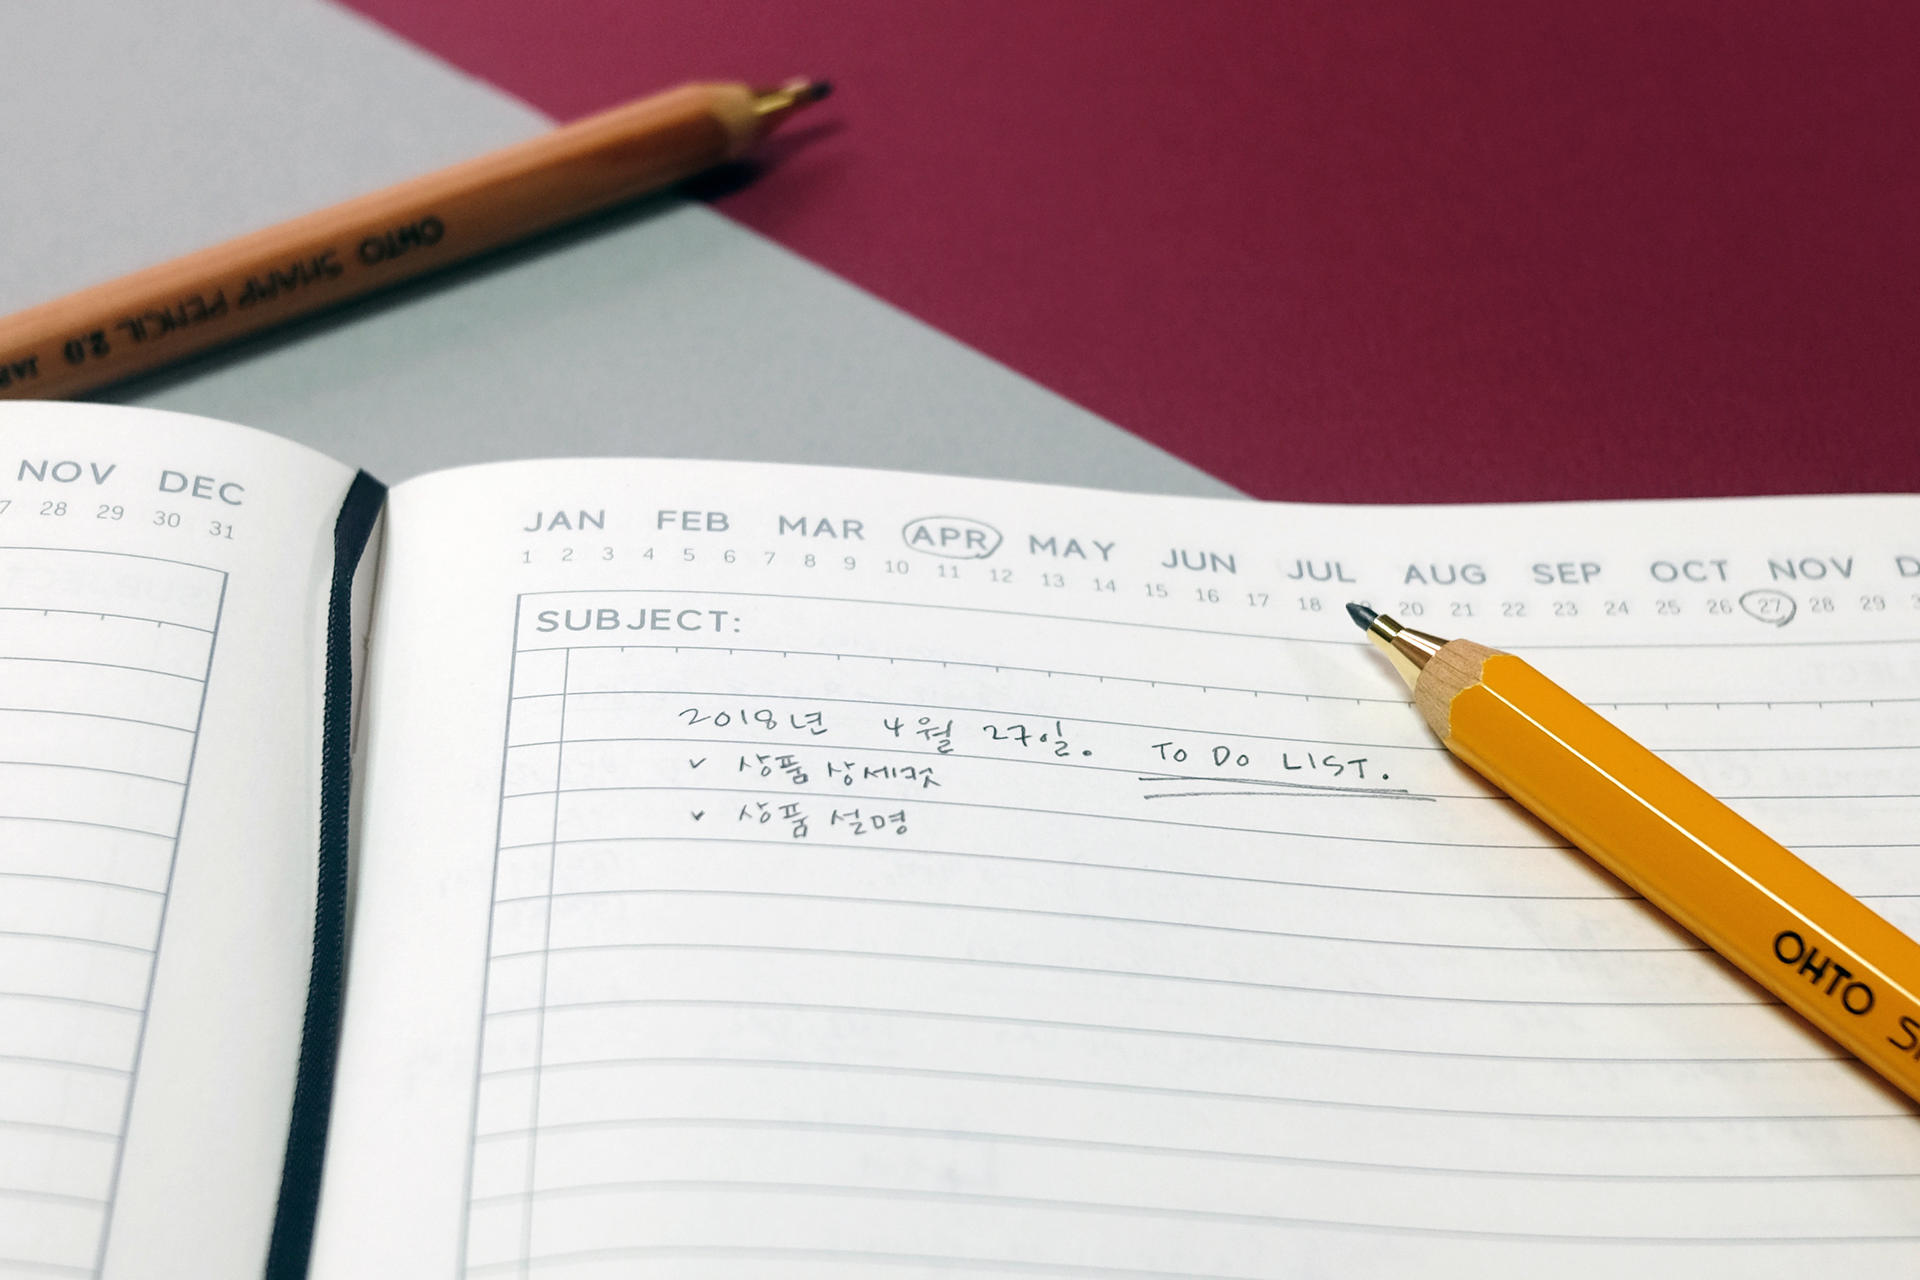 OHTO SHARP PENCIL 2.0
NOV DEC
28 29 30 31
JAN FEB MAR APR MAY JUN JUL AUG SEP OCT NOV
1 2 3 4 5 6 7 8 9 10 11 12 13 14 15 16 17 18 20 21 22 23 24 25 26 27 28 29
SUBJECT:
2018년 4월 27일. TO DO LIST.
✓ 상품 상세컷
✓ 상품 설명
OHTO